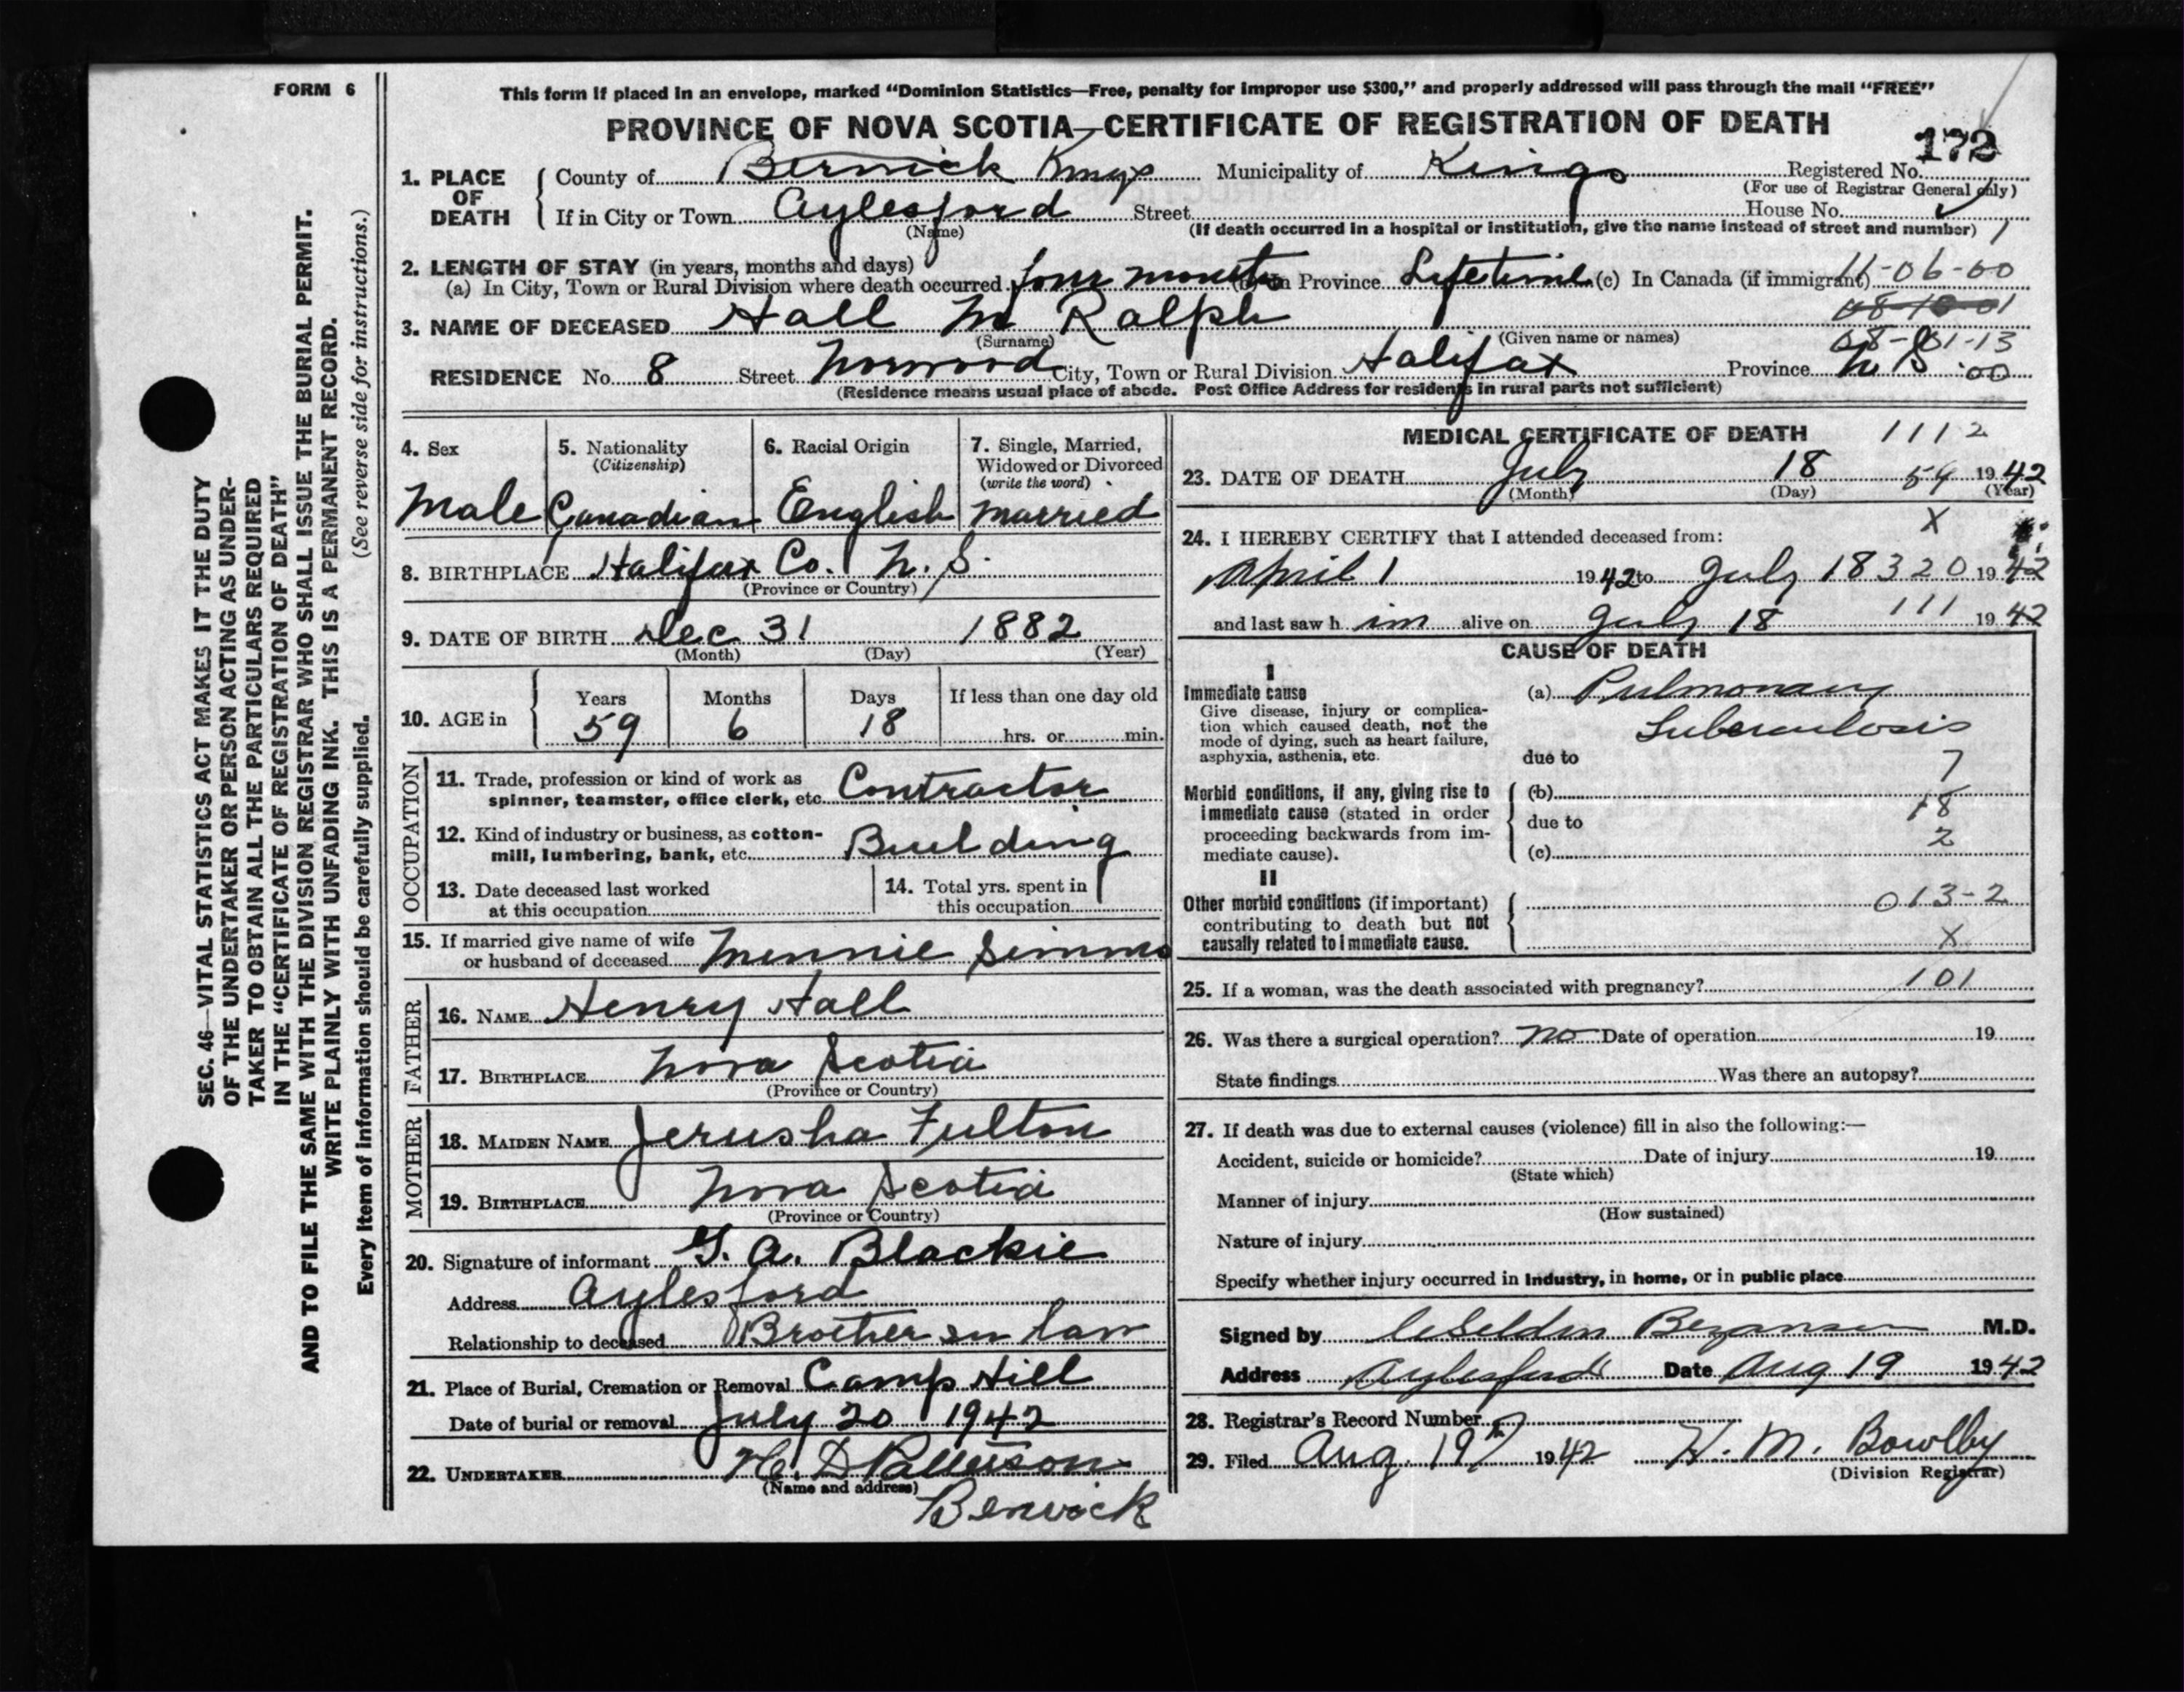 FORM 6
This form if placed in an envelope, marked "Dominion Statistics—Free, penalty for improper use $300," and properly addressed will pass through the mail "FREE"
PROVINCE OF NOVA SCOTIA—CERTIFICATE OF REGISTRATION OF DEATH
172
1. PLACE OF DEATH County of Berwick Kings Municipality of Kings Registered No.
(For use of Registrar General only)
If in City or Town Aylesford Street House No.
(Name) (If death occurred in a hospital or institution, give the name instead of street and number) 1
2. LENGTH OF STAY (in years, months and days)
(a) In City, Town or Rural Division where death occurred four months (b) In Province Lifetime (c) In Canada (if immigrant) 11-06-00
3. NAME OF DECEASED Hall M Ralph
(Surname) (Given name or names)
08-01-13
RESIDENCE No. 8 Street Norwood City, Town or Rural Division Halifax Province N S 00
(Residence means usual place of abode. Post Office Address for residents in rural parts not sufficient)
SEC. 46—VITAL STATISTICS ACT MAKES IT THE DUTY
OF THE UNDERTAKER OR PERSON ACTING AS UNDER-
TAKER TO OBTAIN ALL THE PARTICULARS REQUIRED
IN THE "CERTIFICATE OF REGISTRATION OF DEATH"
AND TO FILE THE SAME WITH THE DIVISION REGISTRAR WHO SHALL ISSUE THE BURIAL PERMIT.
WRITE PLAINLY WITH UNFADING INK. THIS IS A PERMANENT RECORD.
Every item of information should be carefully supplied. (See reverse side for instructions.)
4. Sex
Male
5. Nationality
(Citizenship)
Canadian
6. Racial Origin
English
7. Single, Married,
Widowed or Divorced
(write the word)
Married
8. BIRTHPLACE Halifax Co. N. S.
(Province or Country)
9. DATE OF BIRTH Dec 31 1882
(Month) (Day) (Year)
10. AGE in Years Months Days If less than one day old
59 6 18 hrs. or min.
OCCUPATION
11. Trade, profession or kind of work as
spinner, teamster, office clerk, etc. Contractor
12. Kind of industry or business, as cotton-
mill, lumbering, bank, etc. Building
13. Date deceased last worked
at this occupation
14. Total yrs. spent in
this occupation
15. If married give name of wife
or husband of deceased Minnie Simms
FATHER
16. NAME Henry Hall
17. BIRTHPLACE Nova Scotia
(Province or Country)
MOTHER
18. MAIDEN NAME Jerusha Fulton
19. BIRTHPLACE Nova Scotia
(Province or Country)
20. Signature of informant G. A. Blackie
Address Aylesford
Relationship to deceased Brother in law
21. Place of Burial, Cremation or Removal Camp Hill
Date of burial or removal July 20 1942
22. UNDERTAKER H. D Patterson
(Name and address)
Berwick
MEDICAL CERTIFICATE OF DEATH 1112
23. DATE OF DEATH July 18 59 1942
(Month) (Day) (Year)
X
24. I HEREBY CERTIFY that I attended deceased from:
April 1 1942 to July 18 320 1942
and last saw h im alive on July 18 111 1942
CAUSE OF DEATH
I
Immediate cause
Give disease, injury or complica-
tion which caused death, not the
mode of dying, such as heart failure,
asphyxia, asthenia, etc.
(a) Pulmonary
Tuberculosis
due to 7
Morbid conditions, if any, giving rise to
immediate cause (stated in order
proceeding backwards from im-
mediate cause).
(b)
18
due to
2
(c)
II
Other morbid conditions (if important)
contributing to death but not
causally related to immediate cause.
013-2
X
25. If a woman, was the death associated with pregnancy? 101
26. Was there a surgical operation? no Date of operation 19
State findings Was there an autopsy?
27. If death was due to external causes (violence) fill in also the following:—
Accident, suicide or homicide? Date of injury 19
(State which)
Manner of injury
(How sustained)
Nature of injury
Specify whether injury occurred in industry, in home, or in public place
Signed by Bezanson M.D.
Address Aylesford Date Aug 19 1942
28. Registrar's Record Number 7
29. Filed Aug. 19 1942 H. M. Bowlby
(Division Registrar)